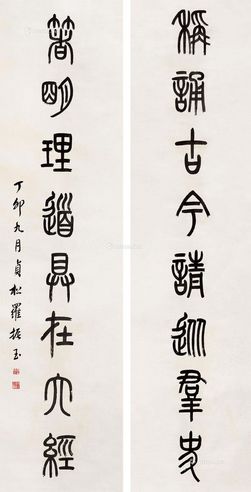 稱誦古今請巡羣史
箸明理道具在六經
丁卯九月貞松羅振玉